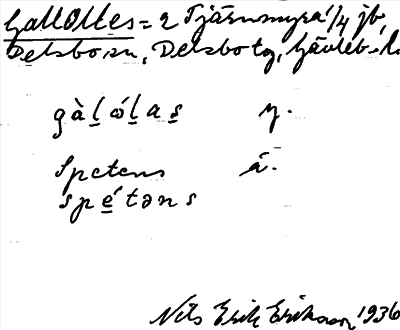 Gallolles = 2 Tjärnmyra 1/4 jb,
Delsbo sn, Delsbo tg, Gävleb. l.
gàḷẃḷas̱ y.
Spetens å.
spe̱ ́təns
Nils Erik Eriksson 1936